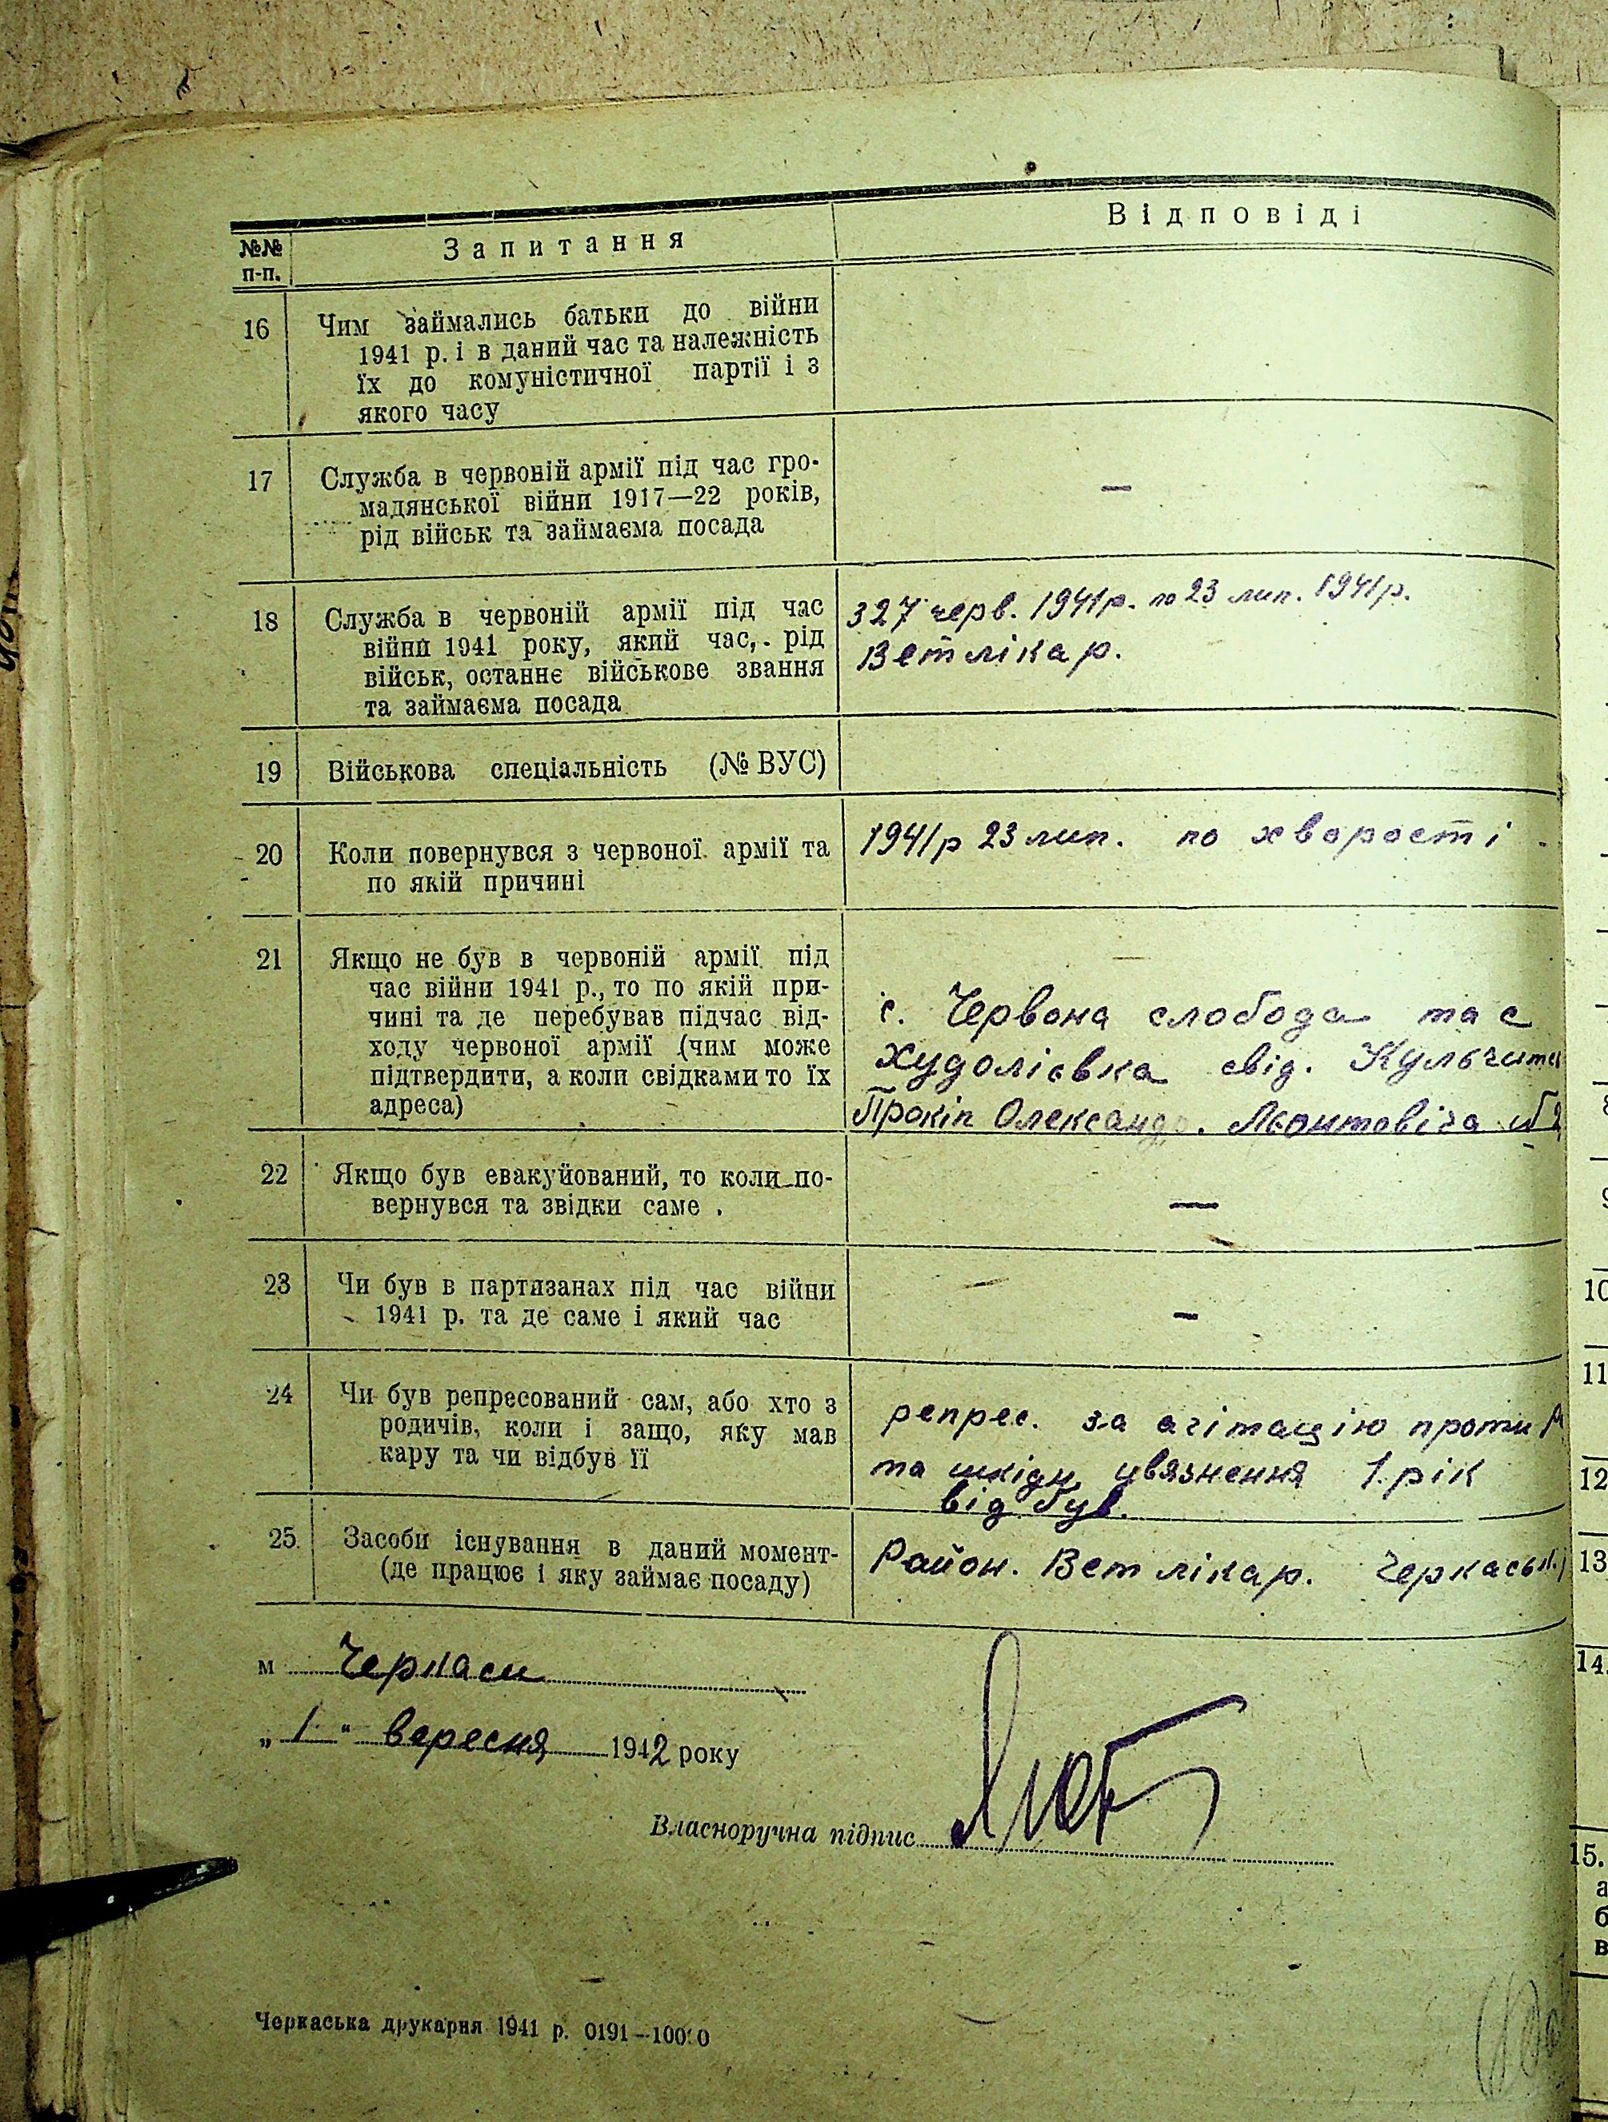 №№ п-п.
Запитання
Відповіді
16
Чим займались батьки до війни
1941 р. і в даний час та належність
їх до комуністичної партії і з
якого часу
17
Служба в червоній армії під час гро-
мадянської війни 1917—22 років,
рід військ та займаєма посада
—
18
Служба в червоній армії під час
війни 1941 року, який час, рід
військ, останнє військове звання
та займаєма посада
З 27 черв. 1941р. по 23 лип. 1941р.
Ветлікар.
19
Військова спеціальність (№ ВУС)
20
Коли повернувся з червоної армії та
по якій причині
1941р 23 лип. по хворості
21
Якщо не був в червоній армії під
час війни 1941 р., то по якій при-
чині та де перебував підчас від-
ходу червоної армії (чим може
підтвердити, а коли свідками то їх
адреса)
—
с. Червона слобода та с
Худоліевка свід.
Прокіп Олександр.
22
Якщо був евакуйований, то коли по-
вернувся та звідки саме .
—
23
Чи був в партизанах під час війни
1941 р. та де саме і який час
—
24
Чи був репресований сам, або хто з
родичів, коли і защо, яку мав
кару та чи відбув її
репрес. за агітацію проти
та шкідн. увязнення 1 рік
від був.
25.
Засоби існування в даний момент-
(де працює і яку займає посаду)
Район. Вет лікар. Черкаськ.
м Черкаси
„ 1 “ вересня 1942 року
Власноручна підпис
Черкаська друкарня 1941 р. 0191—10000
10
11
12
13
14.
15.
а
б
в